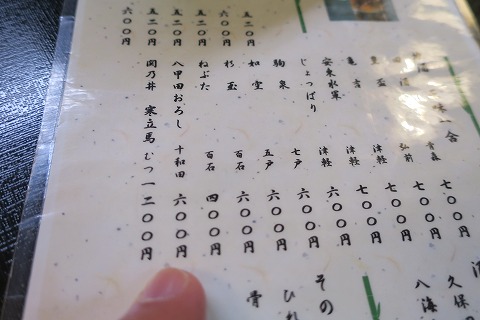 一合
田酒 青森 七〇〇円
豊盃 弘前 七〇〇円
亀吉 津軽 七〇〇円
安東水軍 津軽 七〇〇円
じょっぱり 津軽 六〇〇円
駒泉 七戸 六〇〇円
五二〇円
如空 五戸 六〇〇円
六〇〇円
杉玉 百石 六〇〇円
五二〇円
ねぶた 百石 四〇〇円
五二〇円
八甲田おろし 十和田 六〇〇円
六〇〇円
関乃井 寒立馬 むつ 一二〇〇円
久保
八海
その
ひれ
骨